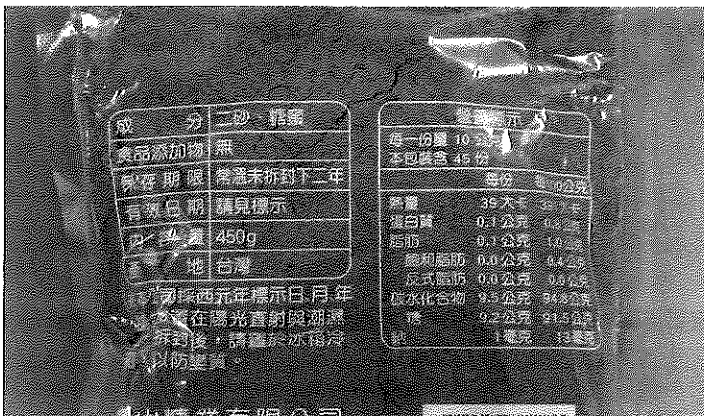 成 分 二砂、糖蜜
食品添加物 無
保存期限 常溫未拆封下二年
有效日期 請見標示
內 容 量 450g
地 台灣
西元年標示日.月.年
在陽光直射與潮濕
拆封後，請置於冰箱冷
以防變質。
營養標示
每一份量 10 公克
本包裝含 45 份
每份 每100公克
熱量 39 大卡
蛋白質 0.1 公克
脂肪 0.1 公克 1.0 公克
飽和脂肪 0.0 公克 0.4 公克
反式脂肪 0.0 公克 0.0 公克
碳水化合物 9.5 公克 94.8 公克
糖 9.2 公克 91.5 公克
鈉 1 毫克 13 毫克
糖業有限公司